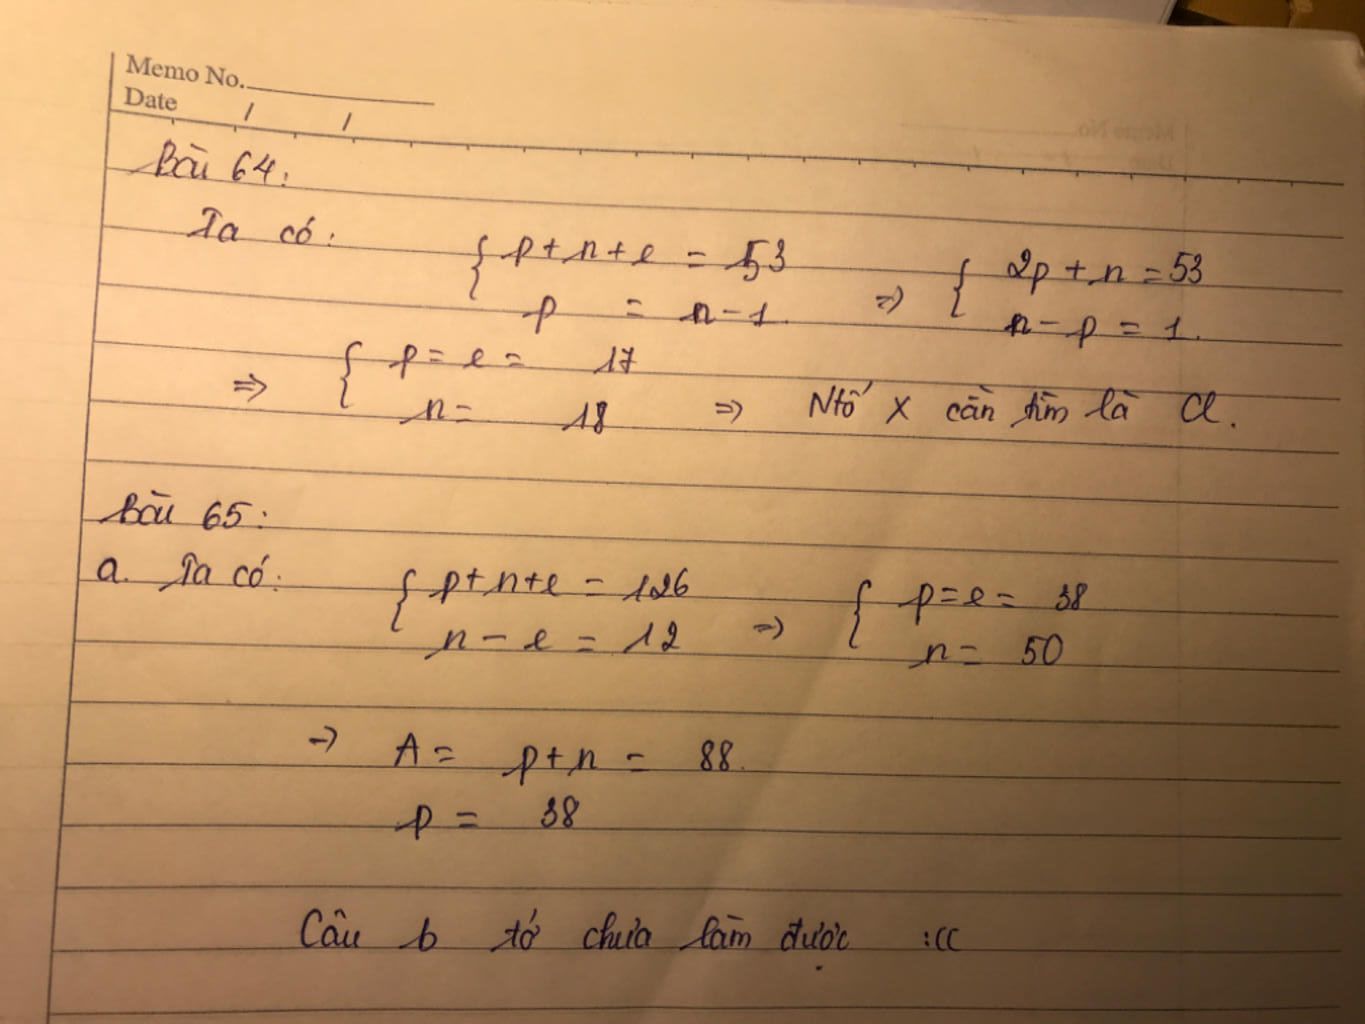 Memo No.
Date / /
Bài 64:
Ta có: { p + n + e = 53
p = n - 1 => { 2p + n = 53
n - p = 1.
=> { p = e = 17
n = 18 => Ntố X cần tìm là Cl.
Bài 65:
a. Ta có: { p + n + e = 126
n - e = 12 => { p = e = 38
n = 50
-> A = p + n = 88.
p = 38
Câu b tớ chưa làm được :((